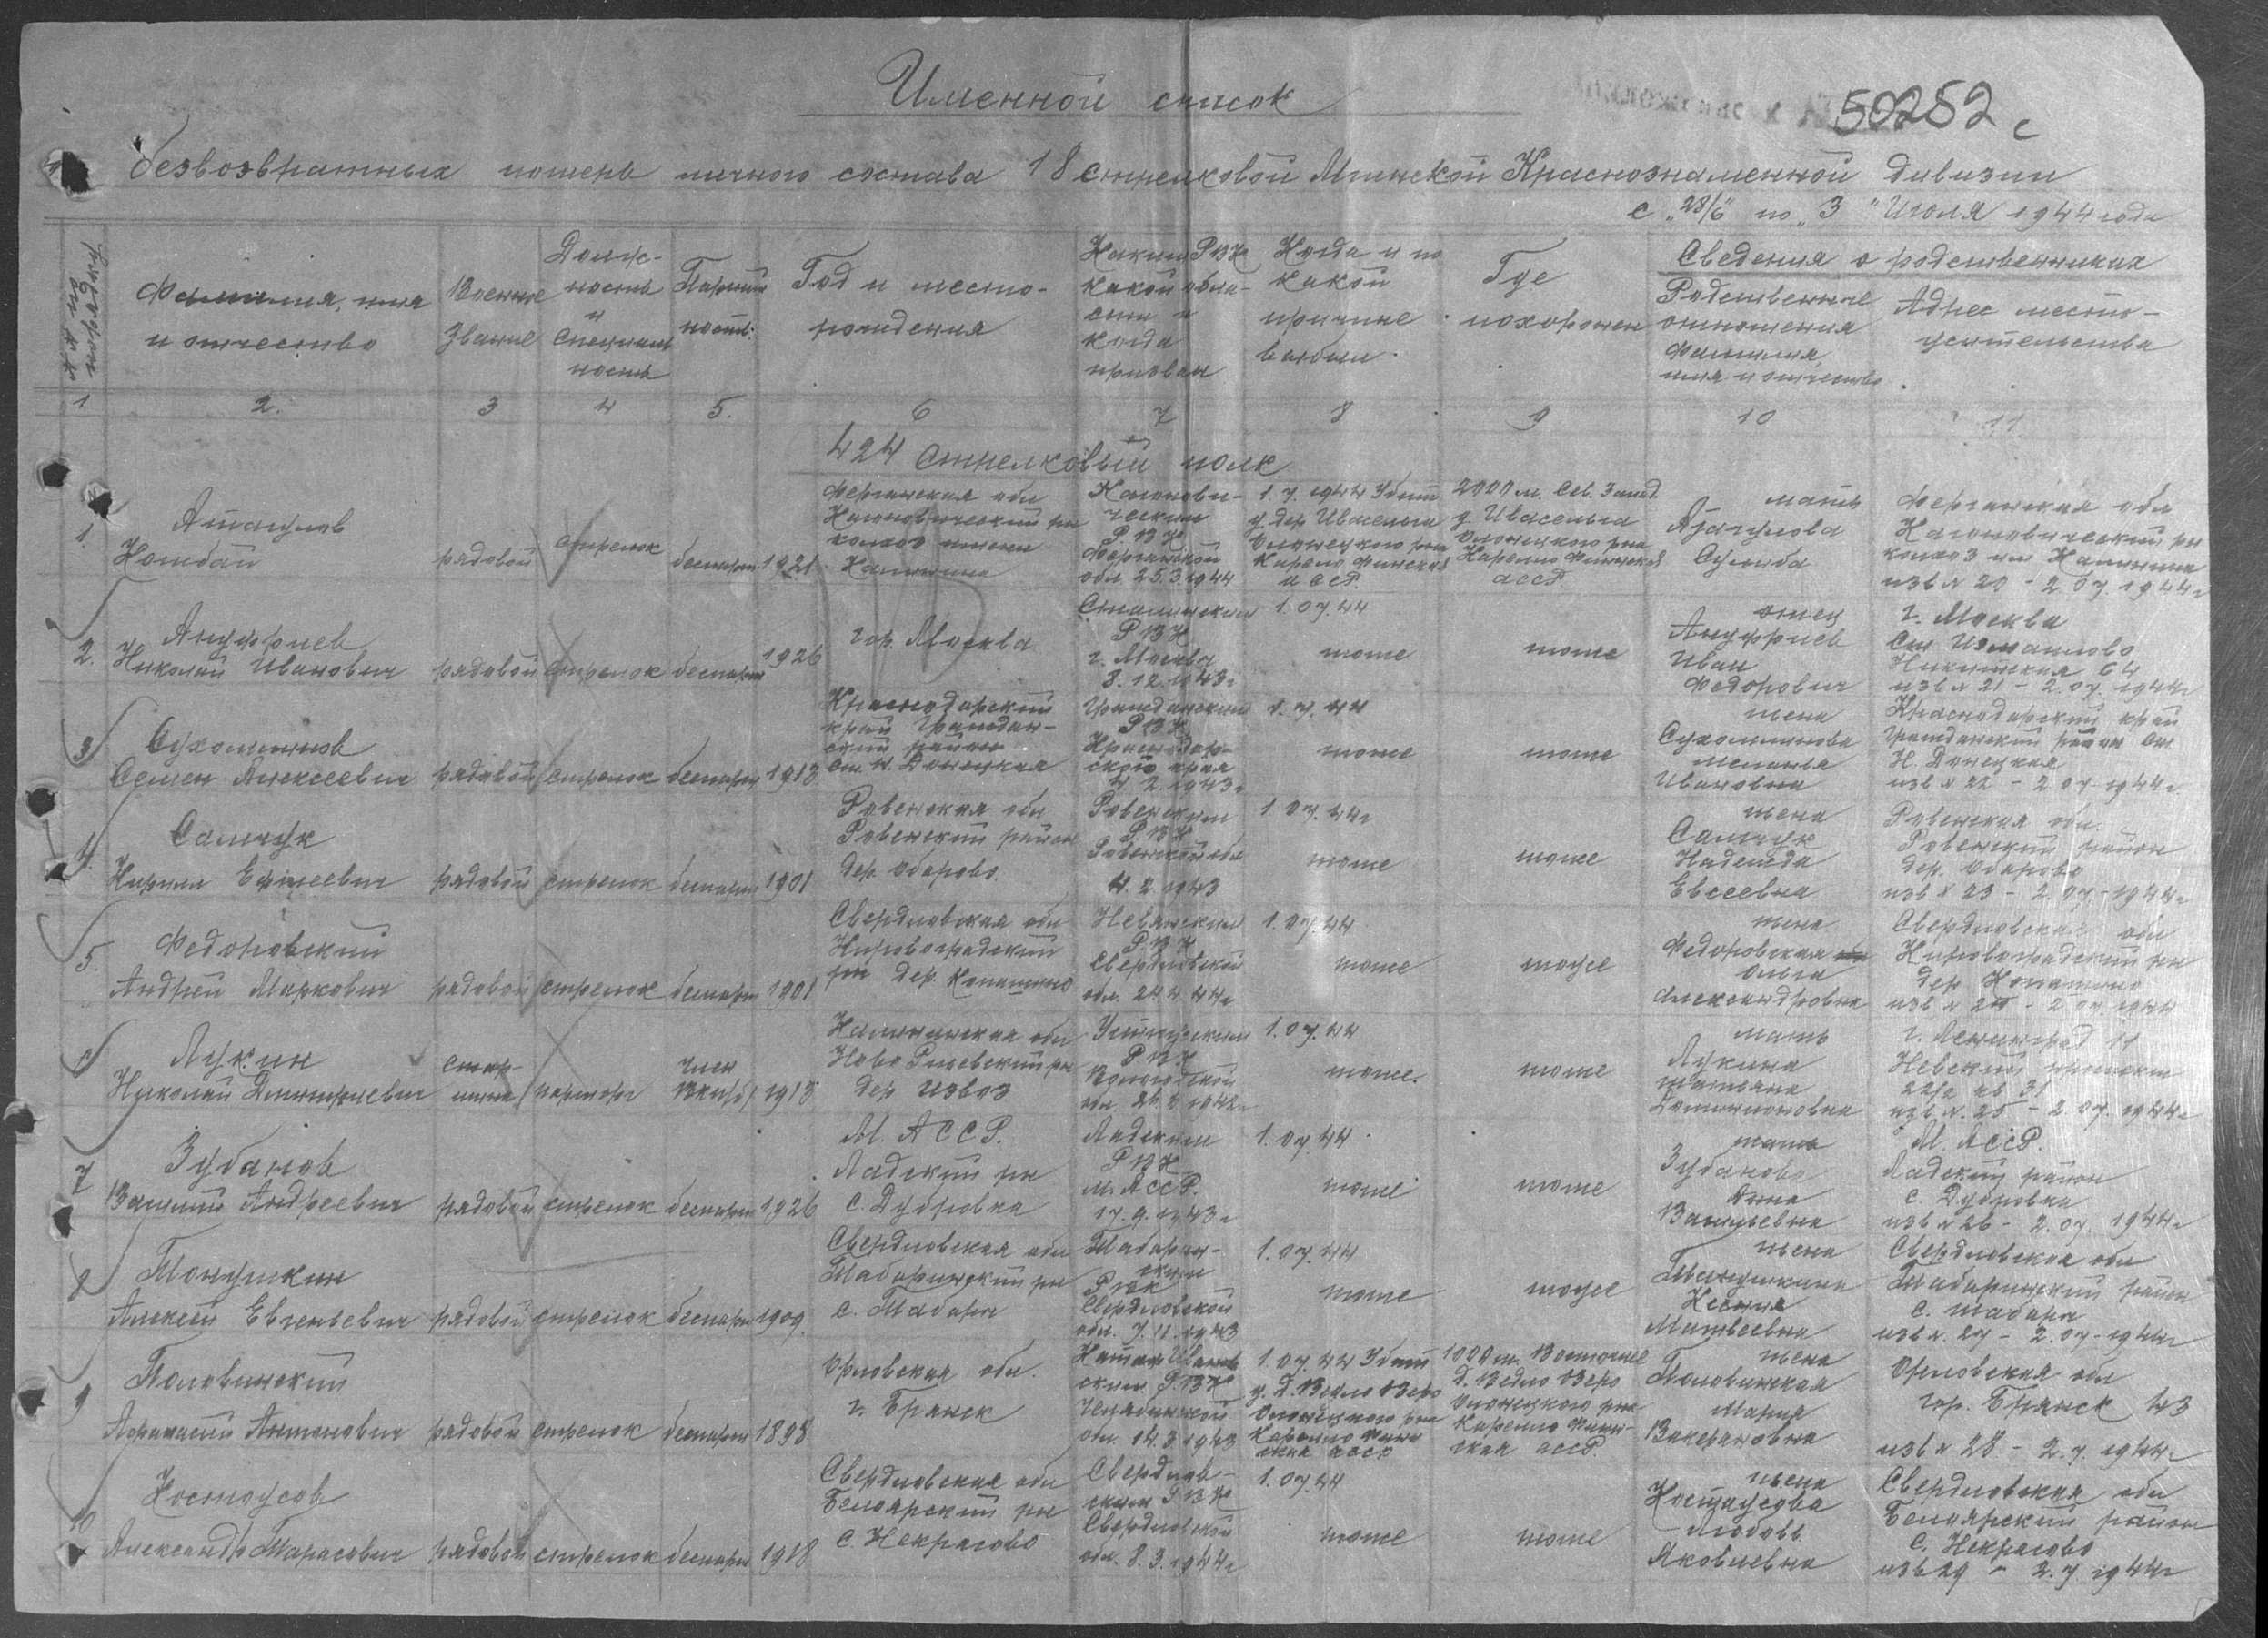 Именной список
50252 с
безвозвратных потерь личного состава 18 стрелковой Мгинской Краснознаменной дивизии
с "28/6" по "3" Июля 1944 года
№ № по порядку
Фамилия, имя и отчество
Военное звание
Долж-
ность
и
специаль
ность
Партий
ность
Год и место-
рождения
Каким РВК
какой обла-
сти и
когда
призван
Когда и по
какой
причине
выбыл
Где
похоронен
Сведения о родственниках
Родственные
отношения
фамилия
имя и отчество
Адрес место-
жительства
1 2. 3 4 5. 6 7 8 9 10 11
424 стрелковый полк
1.
Атагулов
Комбай
рядовой
стрелок
беспарт
1921
Ферганская обл
Кагановический рн
колхоз имени
Калинина
Каганови-
ческим
РВК
Ферганской
обл 25.3.1944
1.7.1944 Убит
у дер Ивасельга
Олонецкого рна
Карело Финская
АССР
2000 м. Сев. Запад.
д Ивасельга
Олонецкого рна
Карело Финской
АССР
мать
Суюмба
Ферганская обл
Кагановический рн
колхоз им Калинина
изв № 20 - 2.07.1944г
2.
Ануфриев
Николай Иванович
рядовой
стрелок
беспарт
1926
гор. Москва
Сталинским
РВК
г. Москва
8.12.1943г
1.07.44
тоже
тоже
отец
Ануфриев
Иван
Федорович
г. Москва
ст. Измаилово
Никитская 64
изв № 21 - 2.07.1944г
3
Сухомлинов
Семен Алексеевич
рядовой
стрелок
беспарт
1913
Краснодарский
край Граждан-
ский район
ст. Н. Донецкая
Гражданским
РВК
Краснодар-
ской края
4.2.1943г
1.7.44
тоже
тоже
жена
Сухомлинова
Меланья
Ивановна
Краснодарский край
Гражданский район ст.
Н. Донецкая
изв № 22 - 2.07.1944г
4.
Самчук
Кирилл Ефимеевич
рядовой
стрелок
беспарт
1901
Ровенская обл
Ровенский район
дер. Обарово.
Ровенским
РВК
Ровенской обл
4.2.1943
1.07.44г
тоже
тоже
жена
Самчук
Надежда
Евсеевна
Ровенская обл.
Ровенский район
дер. Обарово
изв № 23 - 2.07.1944г
5.
Федоровский
Андрей Маркович
рядовой
стрелок
беспарт
1901
Свердловская обл
Кировоградский
рн дер. Копотино
Невянским
РВК
Свердловской
обл. 24.4.44г
1.07.44
тоже
тоже
жена
Федоровская
Ольга
Александровна
Свердловская обл
Кировоградский рн
дер Копотино
изв № 24 - 2.07.1944
6
Лукин
Николай Дмитриевич
стар-
шина
парторг
член
ВКП(б)
1913
Калининская обл
Ново Ржевский рн
дер Извоз
Устюжским
РВК
Вологодской
1.07.44
тоже.
тоже
мать
Лукина
Татьяна
г. Ленинград 11
Невский проспект
22/2 кв 31
изв №. 25 - 2.07.1944г
7
Зубанов
Василий Андреевич
рядовой
стрелок
беспарт
1926
М. АССР.
Ладский рн
с. Дубровка
Ладским
РВК
М. АССР.
17.9.1943г
1.07.44
тоже
тоже
мать
Зубанова
Анна
Васильевна
М. АССР.
Ладский район
с. Дубровка
изв № 26 - 2.07.1944г
8
Тонушкин
Алексей Евгеньевич
рядовой
стрелок
беспарт
1909
Свердловская обл
Табаринский рн
с. Табары
Табарин-
ским
РВК
Свердловской
обл. 7.11.1943
1.07.44
тоже
тоже
жена
Тонушкина
Ксения
Матвеевна
Свердловская обл
Табаринский район
с. Табары
изв №. 27 - 2.07.1944г
9
Половинский
Афанасий Антонович
рядовой
стрелок
беспарт
1898
Орловская обл.
г. Брянск
Катав Иванов
ским РВК
Челябинской
обл. 14.3.1943
1.07.44 Убит
у д. Ведло Озеро
Олонецкого рна
Карело Финн
ская АССР
1000 м. Восточнее
д. Ведло Озеро
Олонецкого рна
Карело Финн-
ская АССР
жена
Половинская
Мария
Валерановна
Орловская обл
гор. Брянск 43
изв № 28 - 2.7.1944г
10
Костоусов
Александр Тарасович
рядовой
стрелок
беспарт
1918
Свердловская обл
Белоярский рн
с. Некрасово
Свердлов-
ским РВК
Свердловской
обл. 8.3.1944г
1.07.44
тоже
тоже
жена
Костоусова
Любовь
Яковлевна
Свердловская обл
Белоярский район
с. Некрасово
изв 29 - 2.7.1944г